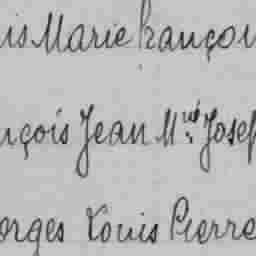 is Marie françoi
nçois Jean M.ud Josep
orges Louis Pierre